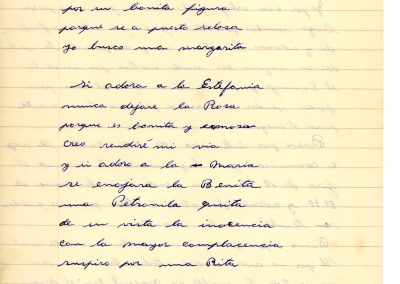 por su bonita figura
porque se a puesto celosa
yo busco una margarita
Si adora a la Estefania
nunca dejare la Rosa
porque es bonita y
creo rendiré mi via
y si adoro a la Maria
se enojara la Benita
una Petronila
de un vista la inocencia
con la mayor complacencia
suspiro por una Rita